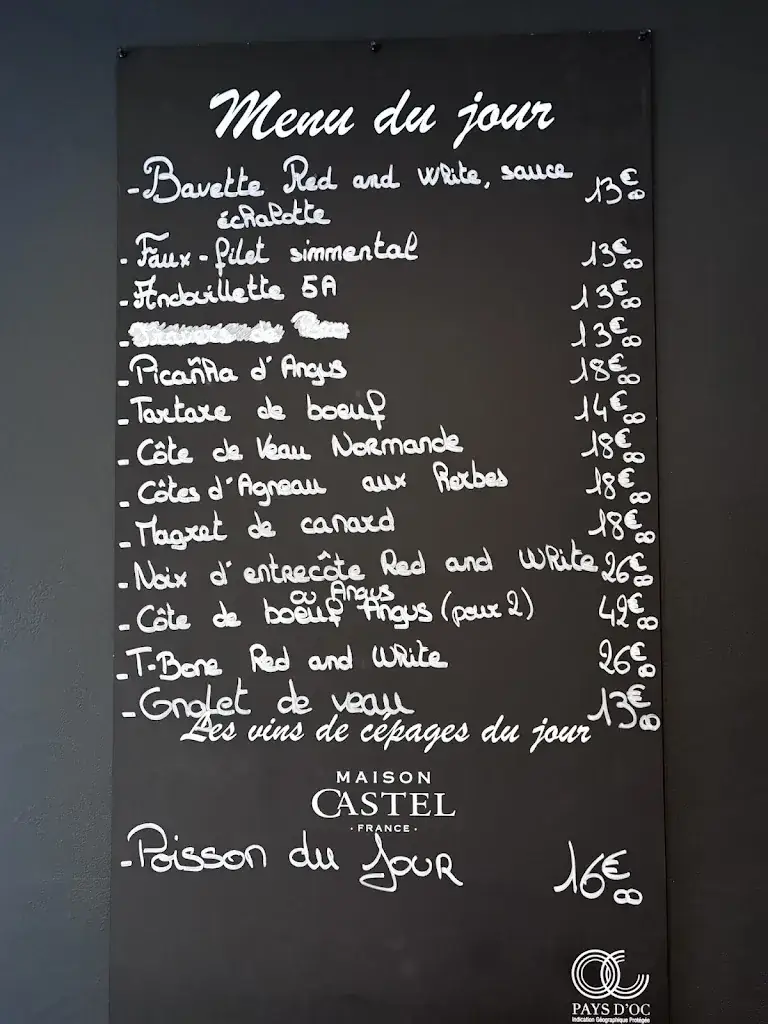 Menu du jour
- Bavette Red and White, sauce 13€00
échalotte
- Faux-filet simmental 13€00
- Andouillette 5A 13€00
- 13€00
- Picañha d'Angus 18€00
- Tartare de boeuf 14€00
- Côte de Veau Normande 18€00
- Côtes d'Agneau aux Herbes 18€00
- Magret de canard 18€00
- Noix d'entrecôte Red and White 26€00
ou Angus
- Côte de boeuf Angus (pour 2) 42€00
- T-Bone Red and White 26€00
- Onglet de veau 13€00
Les vins de cépages du jour
MAISON
CASTEL
· FRANCE ·
- Poisson du Jour 16€00
PAYS D'OC
Indication Géographique Protégée